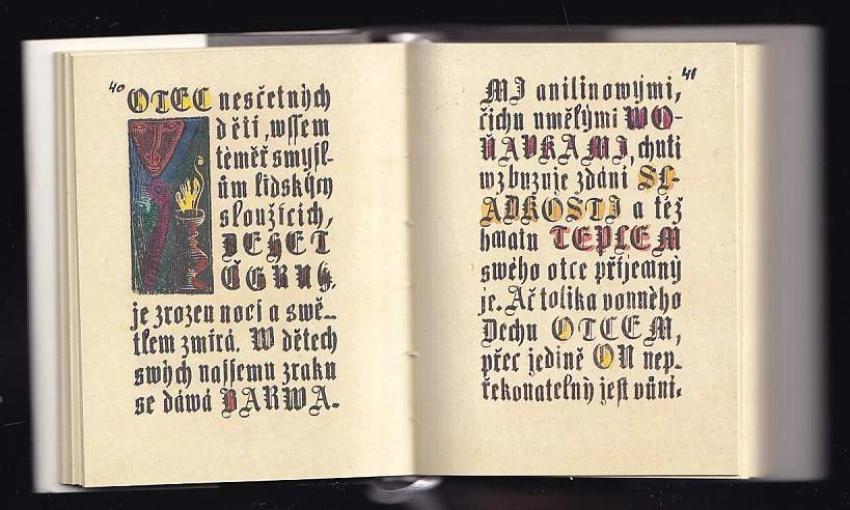 40
OTEC nesčetných
dětí, wssem
téměř smysl-
ům lidským
sloužících,
DEHET
ČERNÝ,
je zrozen nocí a swě-
tlem zmírá. W dětech
swých nassemu zraku
se dáwá BARWA-
41
MI anilinowými,
čichu umělými WO-
ŇAVKAMI, chuti
wzbuzuje zdání SL-
ADKOSTI a též
hmatu TEPLEM
swého otce příjemný
je. Ač tolika vonného
Dechu OTCEM,
přec jedině ON nep-
řekonatelný jest vůni-